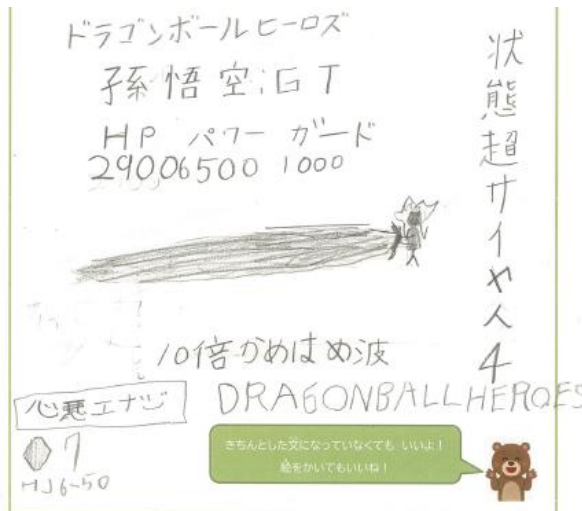 ドラゴンボールヒーロズ
孫悟空:GT
HP パワー ガード
2900 6500 1000
状態超サイヤ人4
10倍かめはめ波
DRAGONBALLHEROES
エナジ
7
HJ6-50
きちんとした文になっていなくても いいよ!
絵をかいてもいいね!